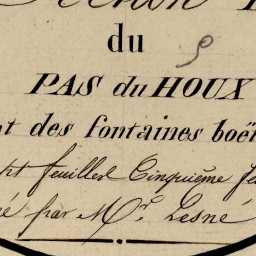 du
PAS du HOUX
des fontaines boë
feuilles Cinquième
par Mr. Lesné